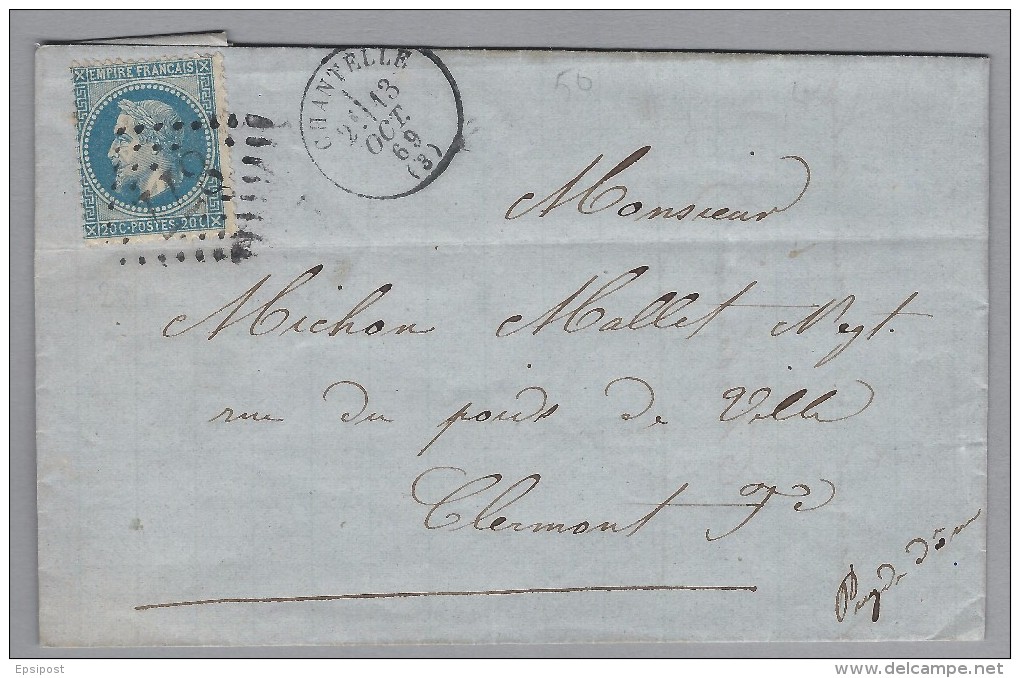 EMPIRE FRANÇAIS
20C·POSTES·20C
CHANTELLE
2E 13
OCT.
69
(3)
50
Monsieur
Michon Mallet Negt.
rue du poids de Ville
Clermont Fd
Puy de Dôme
Epsipost
www.delcampe.net